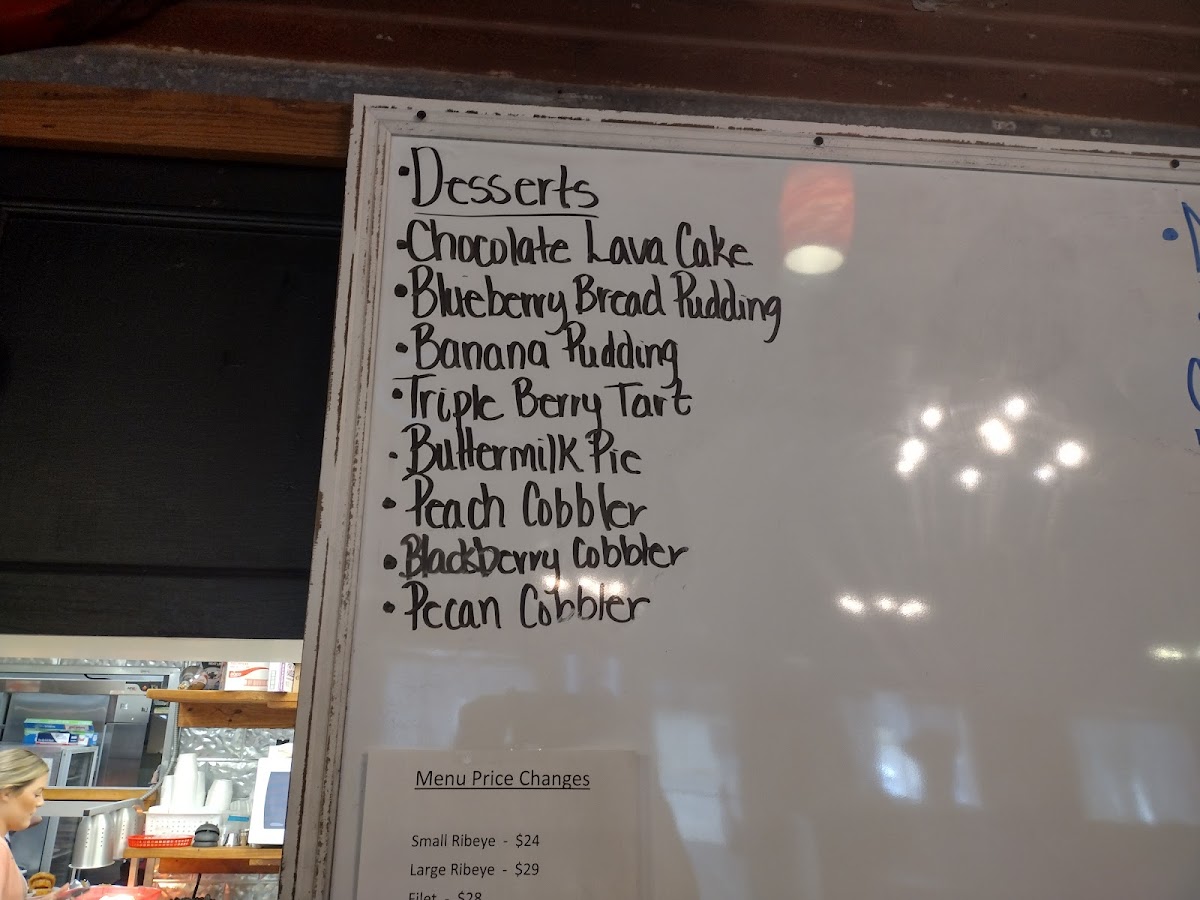 • Desserts
• Chocolate Lava Cake
• Blueberry Bread Pudding
• Banana Pudding
• Triple Berry Tart
• Buttermilk Pie
• Peach Cobbler
• Blackberry Cobbler
• Pecan Cobbler
Menu Price Changes
Small Ribeye - $24
Large Ribeye - $29
Filet - $28